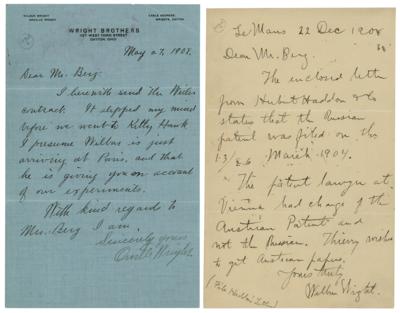 WILBUR WRIGHT
ORVILLE WRIGHT
CABLE ADDRESS,
WRIGHTS, DAYTON
WRIGHT BROTHERS
1127 WEST THIRD STREET
DAYTON, OHIO
May 27, 1908.
Dear Mr. Berg:
I herewith send the Weiller
contract. It slipped my mind
before we went to Kitty Hawk
I presume Wilbur is just
arriving at Paris, and that
he is giving you an account
of our experiments.
With kind regard to
Mrs. Berg I am.
Sincerely yours
Orville Wright.
Le Mans 22 Dec 1908
Dear Mr. Berg.
The enclosed letter
from Hubert Haddan & Co
states that the Russian
patent was filed on the
13/26 March 1904.
The patent lawyer at
Vienna had charge of the
Austrian Patent and
not the Russian. Thierry wishes
to get Austrian papers.
Yours truly
Wilbur Wright.